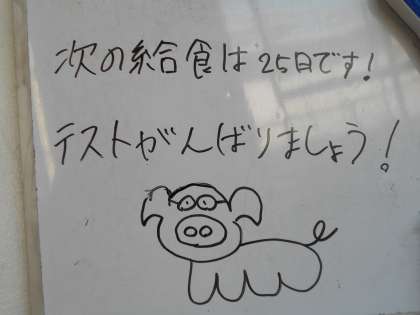 次の給食は25日です!
テストがんばりましょう!